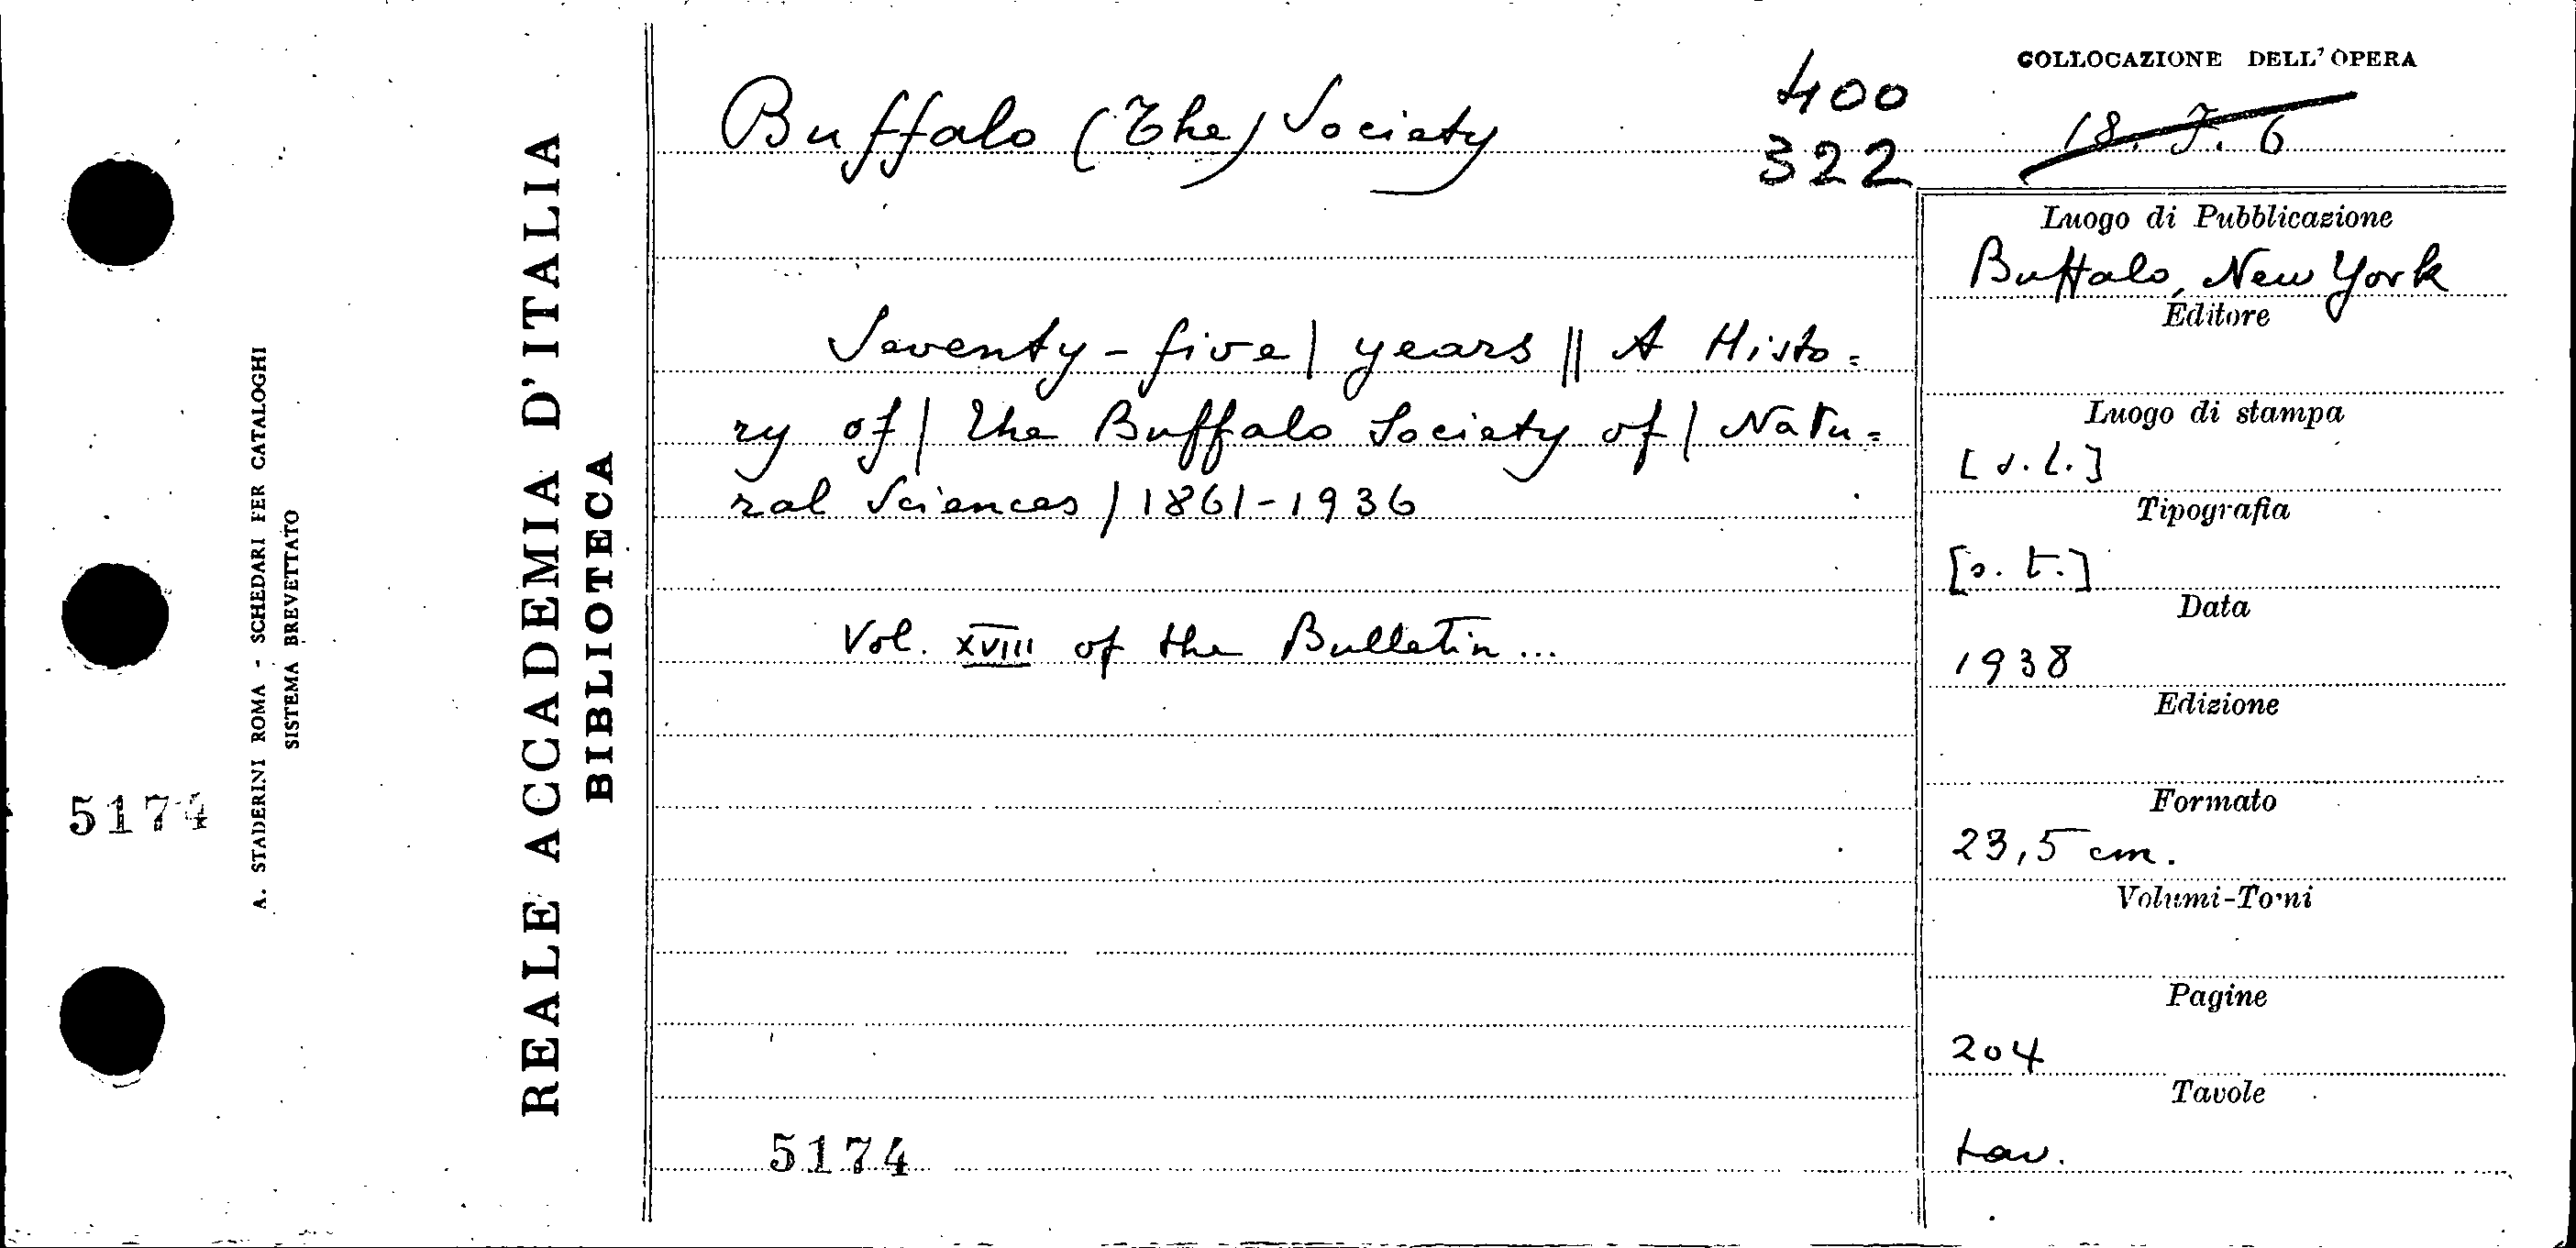 COLLOCAZIONE DELL'OPERA
Buffalo (The) Society
400
322
18. 7. 6
Seventy-five | years || A Histo=
ry of | the Buffalo Society of | Natu=
ral Sciences | 1861-1936
Vol. XVIII of the Bulletin...
5174
Luogo di Pubblicazione
Buffalo, New York
Editore
Luogo di stampa
[s.l.]
Tipografia
[s. t.]
Data
1938
Edizione
Formato
23,5 cm.
Volumi-Tomi
Pagine
204
Tavole
tav.
REALE ACCADEMIA D'ITALIA
BIBLIOTECA
A. STADERINI ROMA - SCHEDARI PER CATALOGHI
SISTEMA BREVETTATO
5174